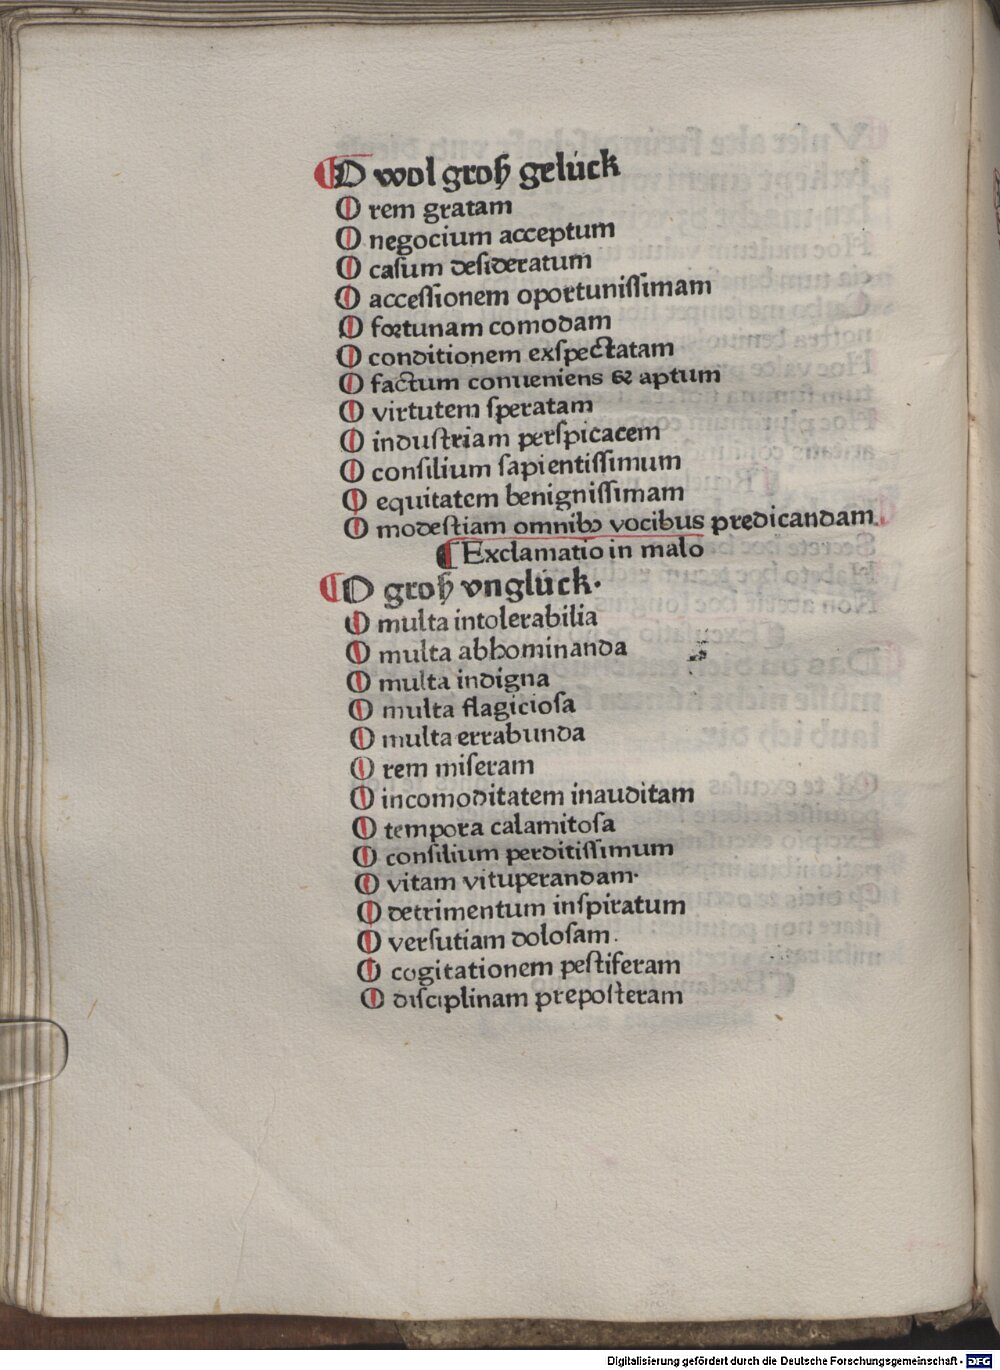 ¶O wol groß gelück
O rem gratam
O negocium acceptum
O caſum deſideratum
O acceſſionem oportuniſſimam
O foꝛtunam comodam
O conditionem exſpectatam
O factum conueniens & aptum
O virtutem ſperatam
O induſtriam perſpicacem
O conſilium ſapientiſſimum
O equitatem benigniſſimam
O modeſtiam omnibꝫ vocibus predicandam.
¶Exclamatio in malo
¶O groß vnglück.
O multa intolerabilia
O multa abhominanda
O multa indigna
O multa flagicioſa
O multa errabunda
O rem miſeram
O incomoditatem inauditam
O tempora calamitoſa
O conſilium perditiſſimum
O vitam vituperandam.
O detrimentum inſpiratum
O verſutiam doloſam.
O cogitationem peſtiferam
O diſciplinam prepoſteram
Digitalisierung gefördert durch die Deutsche Forschungsgemeinschaft - DFG